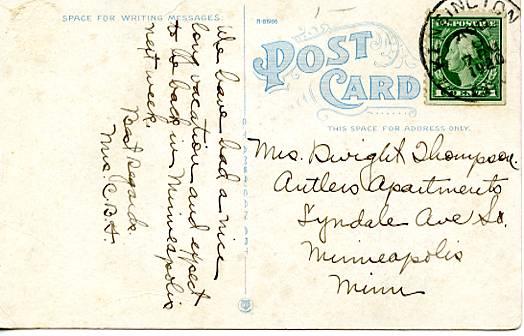 SPACE FOR WRITING MESSAGES.
We have had a nice
long vacation and expect
to be back in Minneapolis
next week.
Best regards.
Mrs. C.B.H.
POST
CARD
THIS SPACE FOR ADDRESS ONLY.
Mrs. Dwight Thompson.
Antlers Apartments
Lyndale Ave So.
Minneapolis
Minn